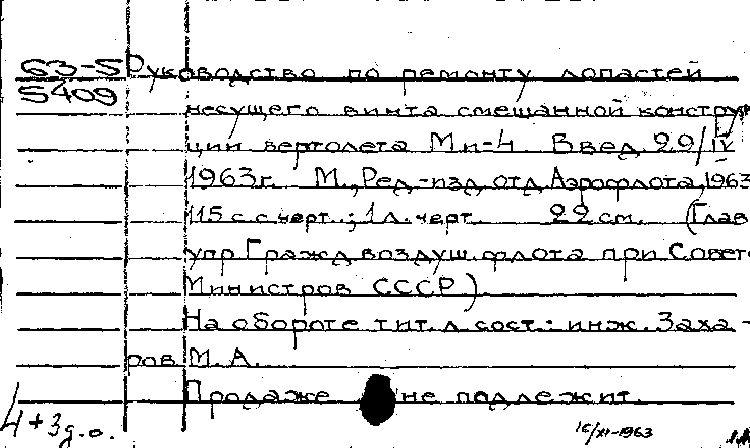 63-5 Руководство по ремонту лопастей
5409 несущего винта смешанной констру
ции вертолета Ми-4. Введ. 29/IV
1963г. М., Ред.-изд. отд. Аэрофлота, 1963
115 с. с черт.; 1 л. черт. 22 см. (Глав.
упр. Гражд. воздуш. флота при Совете
Министров СССР)
На обороте тит. л. сост.: инж. Заха-
ров М. А.
Продаже не подлежит.
4+3д.о. 16/XI-1963